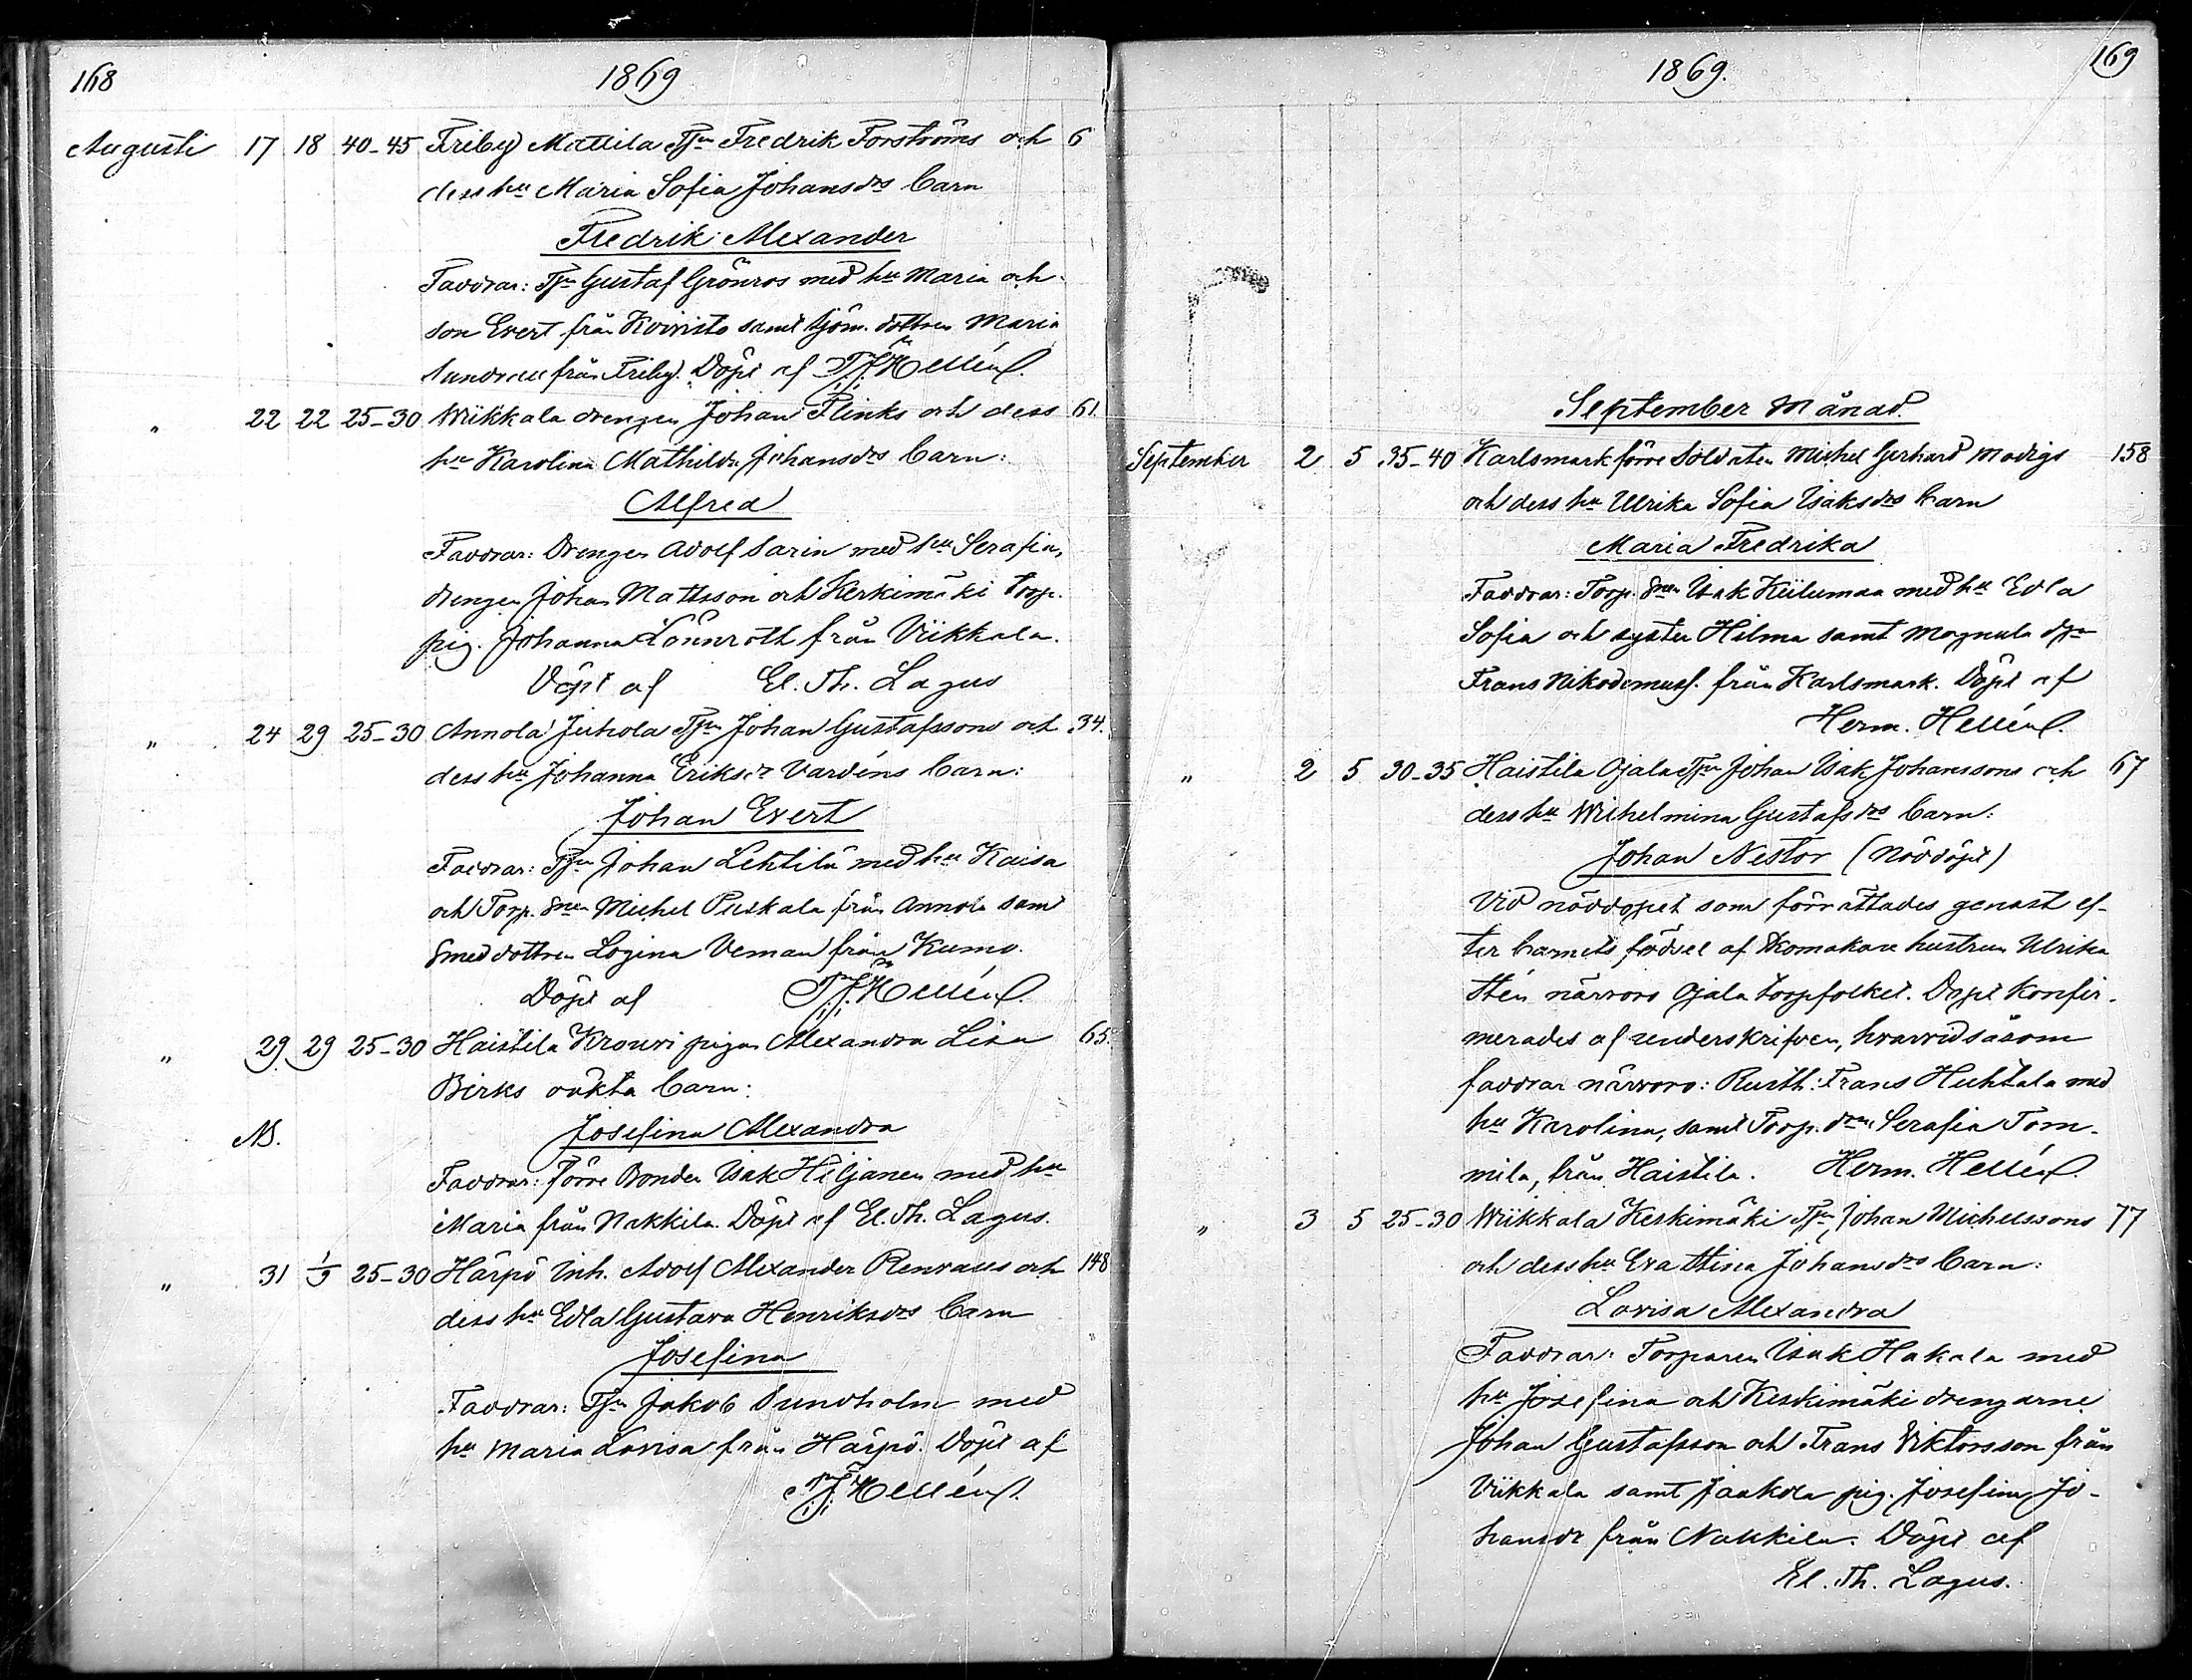 168
1869
Augusti 17 18 40-45 Friby Mattila Tjn Fredrik Forströms och 6
dess hu Maria Sofia Johansdrs barn
Fredrik Alexander
Faddrar: Tjn Gustaf Grönros med hu Maria och
son Evert från Koivisto samt sjöm. dottren Maria
Sundell från Friby. Döpt af Hellén.
" 22 22 25-30 Wiikkala drengen Johan Flinks och dess 61.
hu Karolina Mathilda Johansdrs barn:
Alfred
Faddrar: Drengen Adolf Sarin med hu Serafia,
drengen Johan Mattsson och Kerkimäki torp.
pig. Johanna Lönnroth från Viikkala.
Döpt af El. Th. Lagus
" 24 29 25-30 Annola Juhola Tjn Johan Gustafssons och 34.
dess hu Johanna Eriksdr Vardéns barn:
Johan Evert
Faddrar: Tjn Johan Lehtilä med hu Kaisa
och Torp. Snen Michel Puskala från Annola samt
Smeddottren Logina Veman från Kumo.
Döpt af Hellén.
" 29 29 25-30 Haistila Krouvi pigan Alexandra Lisa 65.
Birks oäkta barn:
NB. Josefina Alexandra
Faddrar: förre Bonden Isak Hiljanen med hu
Maria från Nakkila. Döpt af El. Th. Lagus.
" 31 1/9 25-30 Härpö Inh. Adolf Alexander Renvalls och 148
dess hu Edla Gustava Henriksdrs barn
Josefina
Faddrar: Tjn Jakob Sundholm med
hu Maria Lovisa från Härpö. Döpt af
Hellén.
169
1869.
September Månad.
September 2 5 35-40 Karlsmark förre Soldaten Michel Gerhard Modigs 158
och dess hu Ulrika Sofia Isaksdrs barn
Maria Fredrika
Faddrar: Torp. Snen Isak Kiilumaa med hu Edla
Sofia och syster Hilma samt Magnula
Frans Nikodemuss. från Karlsmark. Döpt af
Herm. Hellén.
" 2 5 30-35 Haistila Ojala Tjn Johan Isak Johanssons och 67
dess hu Wilhelmina Gustafsdrs barn:
Johan Nestor (Nöddöpt)
Vid nöddopet som förrättades genast ef-
ter barnets födsel af skomakare hustrun Ulrika
Stén närvoro Ojala torpfolket. Dopet konfir-
merades af underskrifven, hvarvid såsom
faddrar närvoro: Rusth: Frans Huhtala med
hu Karolina, samt Torp. drn Serafia Tom-
mila, från Haistila. Herm. Hellén.
" 3 5 25-30 Wiikkala Keskimäki Tjn Johan Michelssons 77
och dess hu Eva Stina Johansdrs barn:
Lovisa Alexandra
Faddrar: Torparen Isak Hakala med
hu Josefina och Keskimäki drengarne
Johan Gustafsson och Frans Viktorsson från
Viikkala samt Jaakola pig. Josefina Jo-
hansdr från Nakkila. Döpt af
El. Th. Lagus.